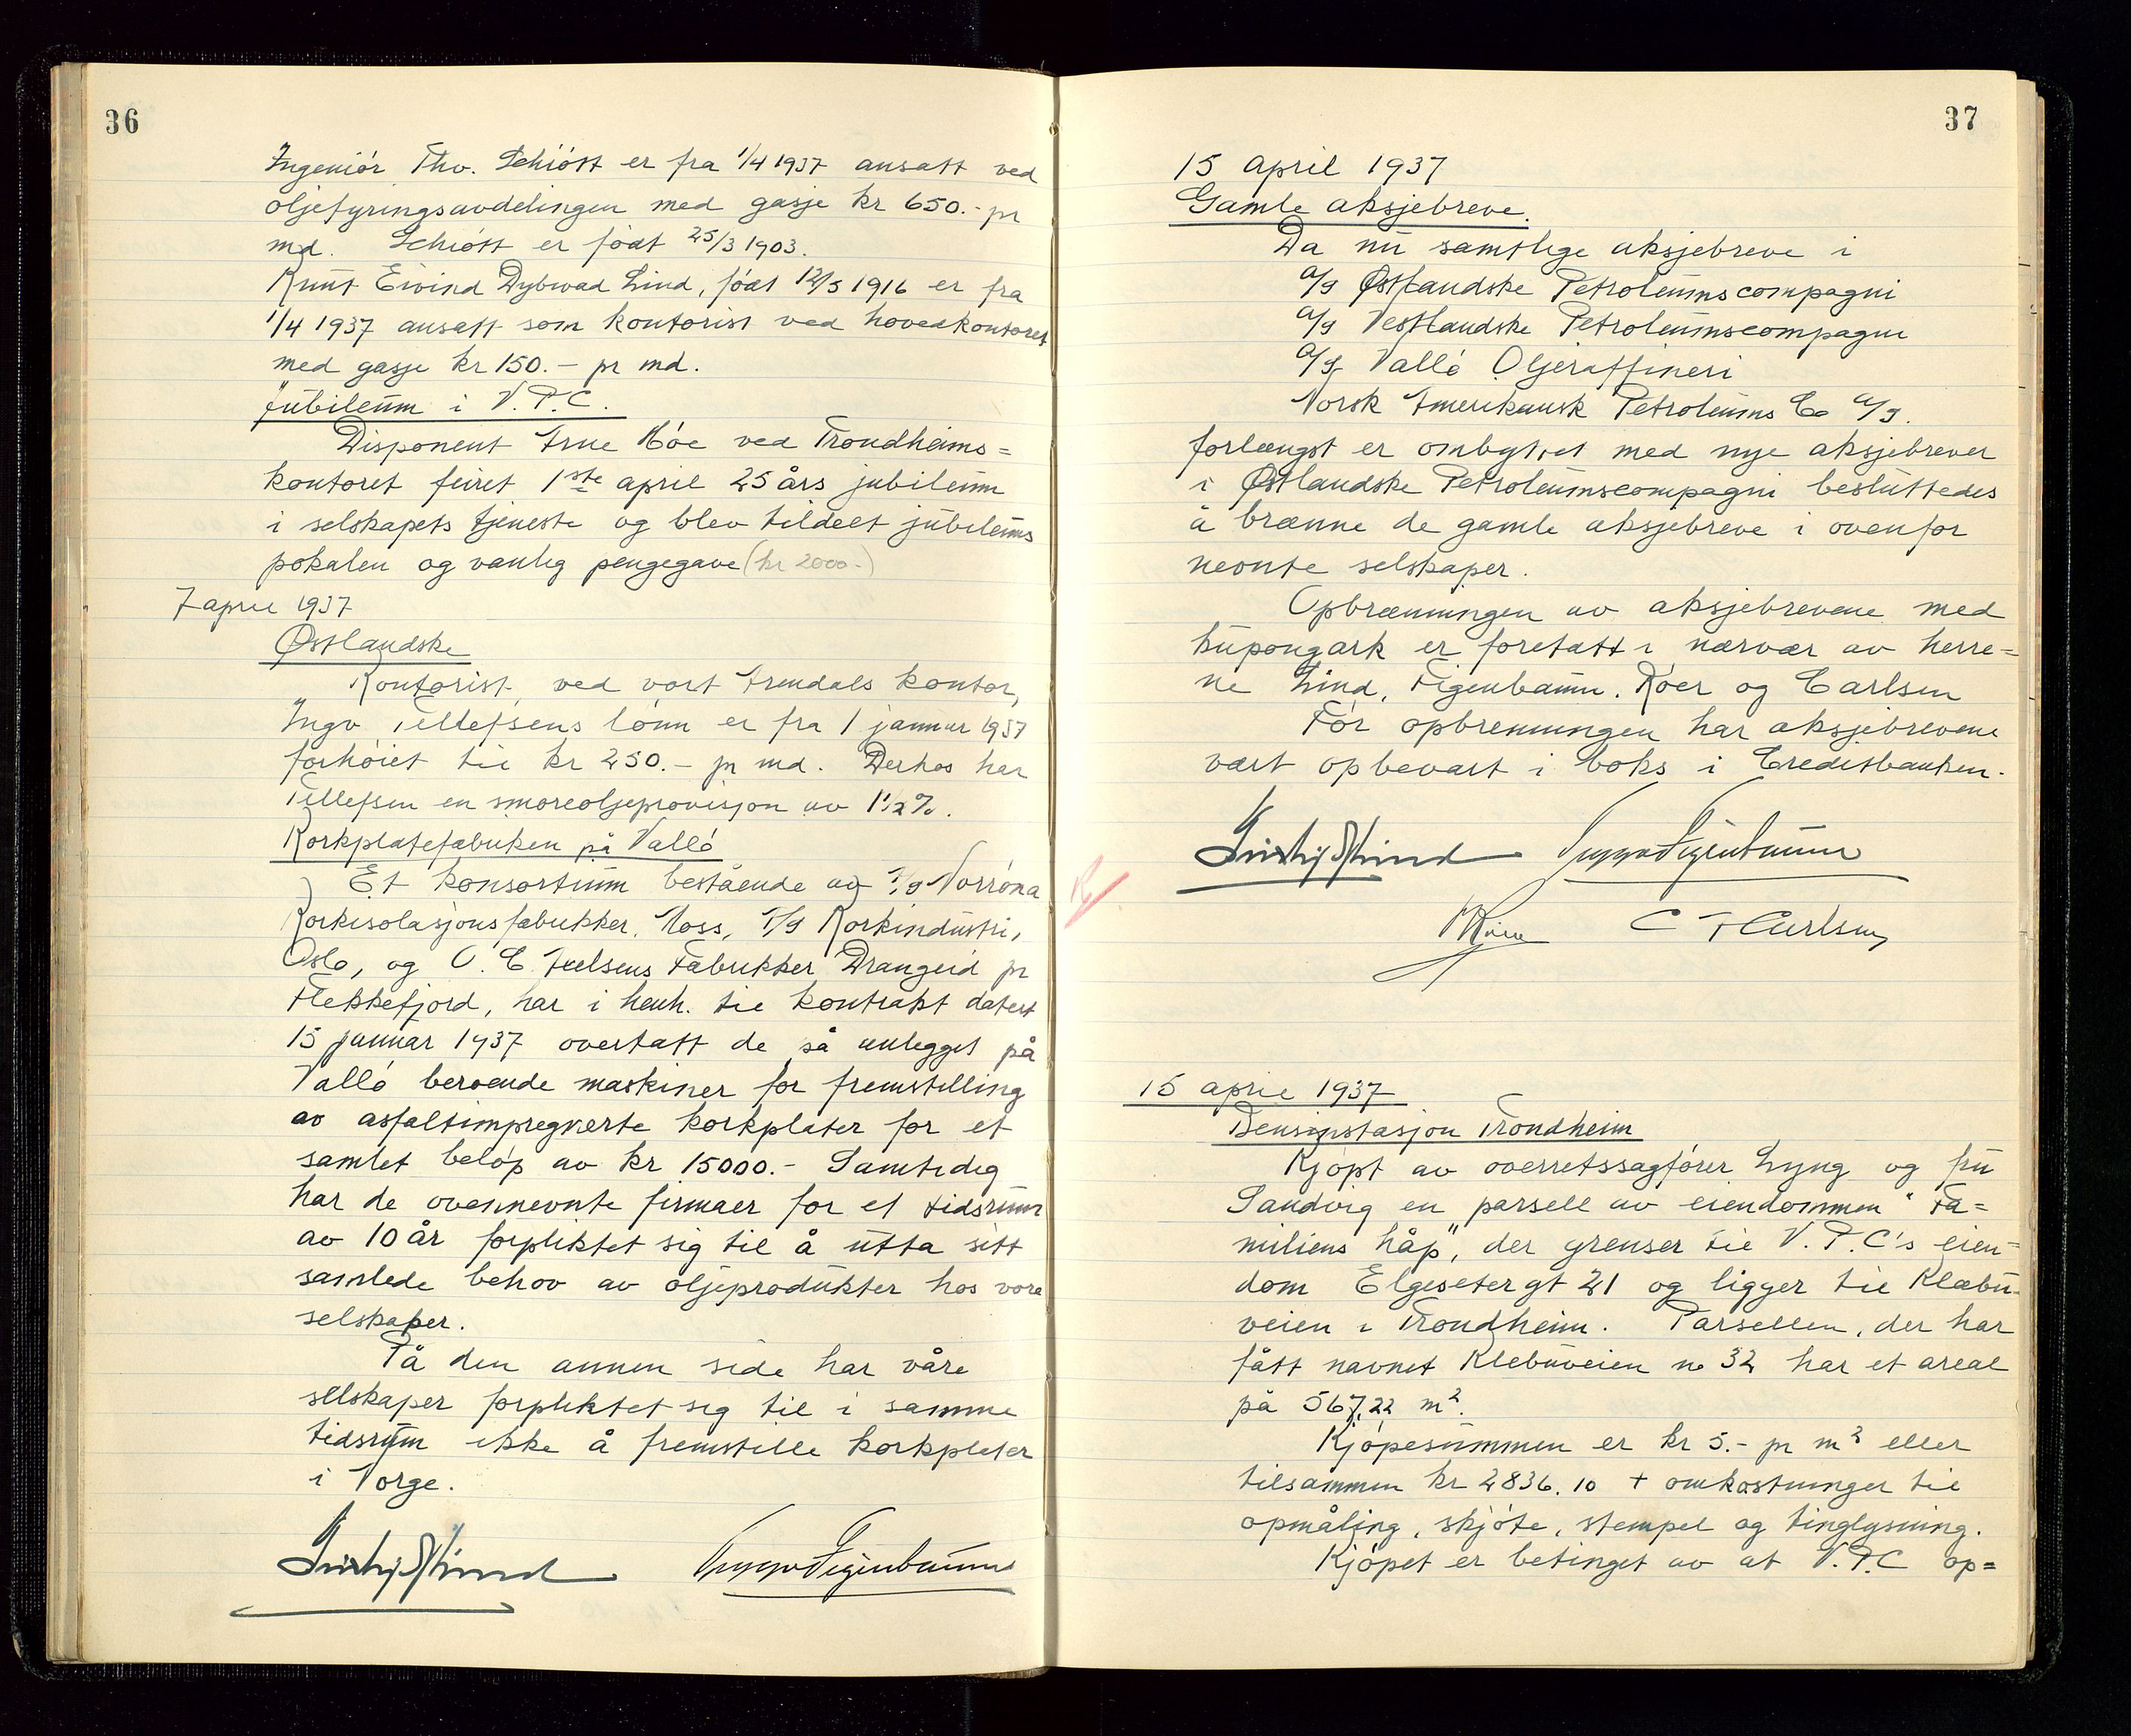 36
Ingeniör Thv. Schiött er fra 1/4 1937 ansatt ved
oljefyringsavdelingen med gasje kr 650.- pr
md. Schiött er födt 25/3 1903.
Knut Eivind Dybwad Lind, födt 12/5 1916 er fra
1/4 1937 ansatt som kontorist ved hovedkontoret
med gasje kr 150.- pr md.
Jubileum i V.P.C.
Disponent Arne Höe ved Trondheims=
kontoret feiret 1ste april 25 års jubileum
i selskapets tjeneste og blev tildelt jubileums
pokalen og vanlig pengegave (kr 2000.-)
7 april 1937
Østlandske
Kontorist ved vort Arendals kontor,
Ingv. Tellefsens lönn er fra 1 januar 1937
forhöiet til kr 250.- pr md. Derhos har
Tellefsen en smøreoljeprovisjon av 1 1/2 %.
Korkplatefabriken på Vallö
Et konsortium bestående av A/S Norröna
Korkisolasjonsfabrikker, Moss, A/S Korkindustri,
Oslo, og O. C. Axelsens Fabrikker Drangeid pr
Flekkefjord, har i henh. til kontrakt datert
15 januar 1937 overtatt de på anlegget på
Vallö beroende maskiner for fremstilling
av asfaltimpregnerte korkplater for et
samlet belöp av kr 15000.- Samtidig
har de ovennevnte firmaer for et tidsrum
av 10 år forpliktet sig til å utta sitt
samlede behov av oljeprodukter hos vore
selskaper.
På den annen side har våre
selskaper forpliktet sig til i samme
tidsrum ikke å fremstille korkplater
i Norge.
37
15 april 1937
Gamle aksjebreve.
Da nu samtlige aksjebreve i
A/S Østlandske Petroleumscompagni
A/S Vestlandske Petroleumscompagni
A/S Vallö Oljeraffineri
Norsk Amerikansk Petroleums Co A/S.
forlængst er ombyttet med nye aksjebrever
i Østlandske Petroleumscompagni besluttedes
å brænne de gamle aksjebreve i ovenfor
nevnte selskaper.
Opbrænningen av aksjebrevene med
kupongark er foretatt i nærvær av herre=
ne Lind, Figenbaum, Röer og Carlsen
För opbrenningen har aksjebrevene
vært opbevart i boks i Creditbanken.
C F Carlsen
15 april 1937
Bensinstasjon Trondheim
Kjöpt av overretssagförer Lyng og fru
Sandvig en parsell av eiendommen "Fa=
miliens håp", der grenser til V.P.C's eien=
dom Elgeseter gt 21 og ligger til Klæbu-
veien i Trondheim. Parsellen, der har
fått navnet Klebuveien no 32 har et areal
på 567,22 m2.
Kjöpesummen er kr 5.- pr m2 eller
tilsammen kr 2836.10 + omkostninger til
opmåling, skjöte, stempel og tinglysning.
Kjöpet er betinget av at V.P.C op=